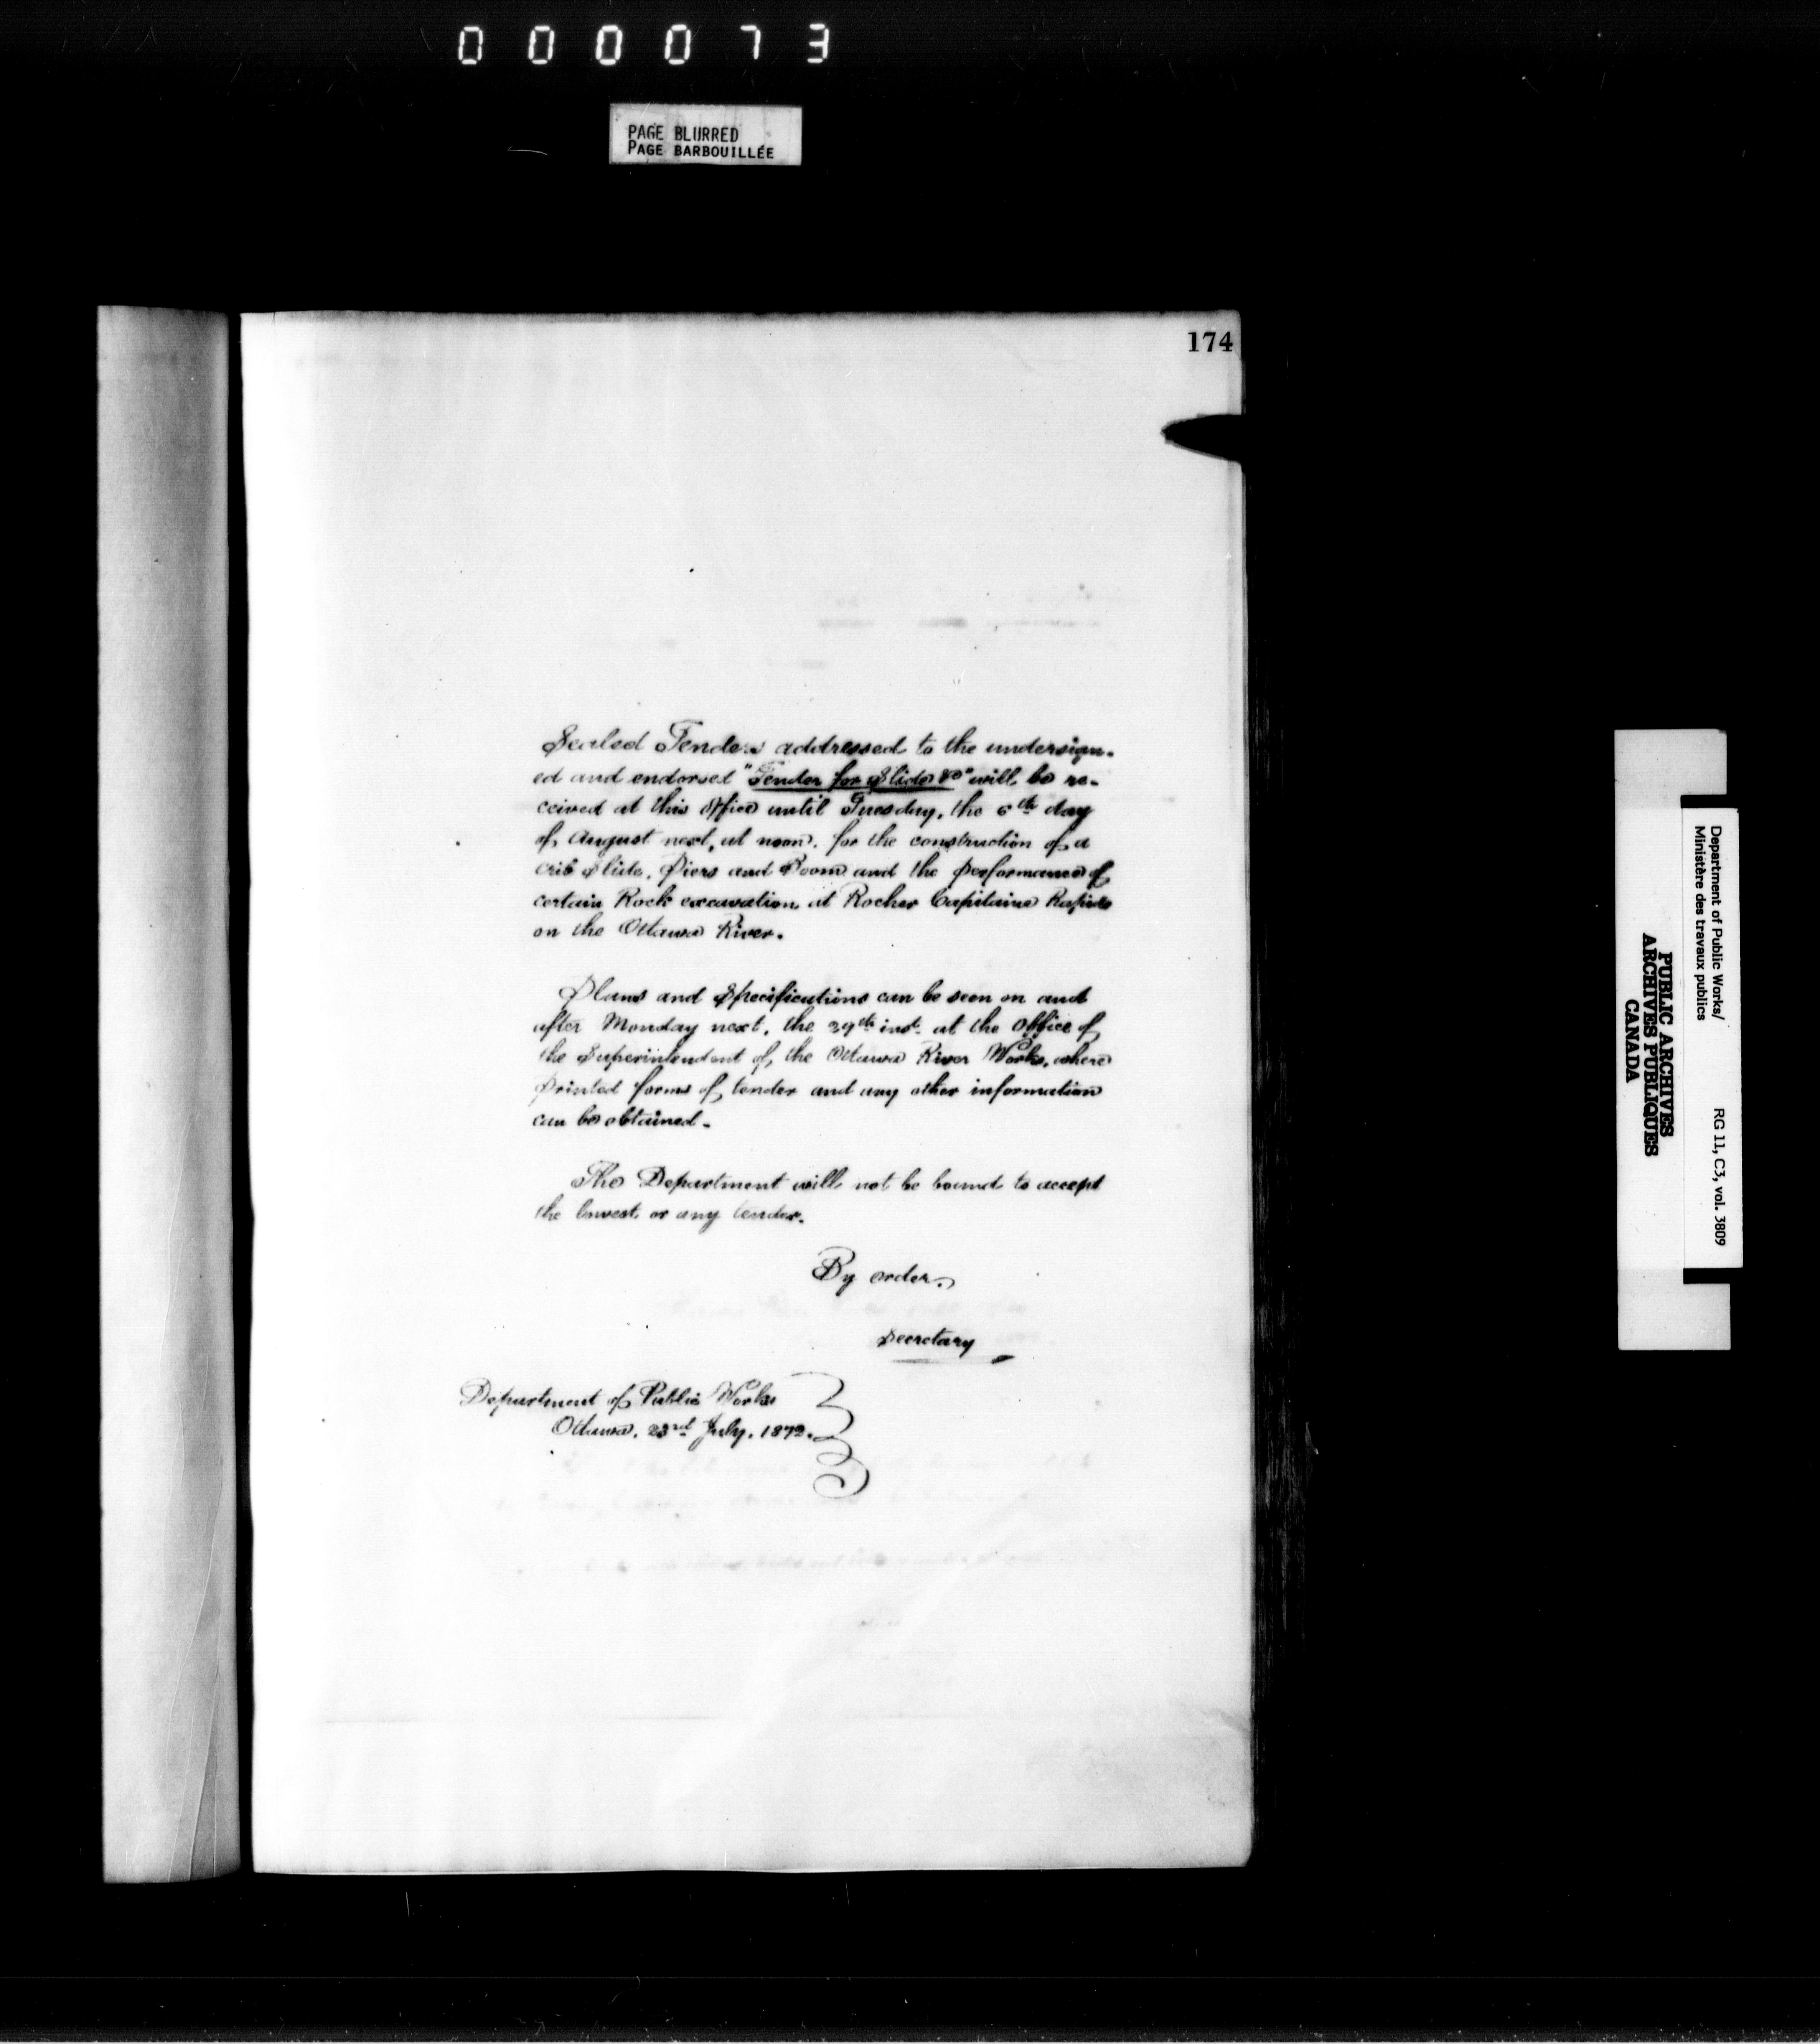 000073
PAGE BLURRED
PAGE BARBOUILLÉE
174
Sealed Tenders addressed to the undersign-
ed and endorsed "Tender for Slide &c" will be re-
ceived at this Office until Tuesday, the 6th day
of August next, at noon, for the construction of a
crib Slide, Piers and Boom and the performance of
certain Rock excavation at Rocher Capitaine Rapids
on the Ottawa River.
Plans and Specifications can be seen on and
after Monday next, the 29th inst. at the Office of
the Superintendent of the Ottawa River Works, where
Printed forms of tender and any other information
can be obtained.
The Department will not be bound to accept
the lowest or any tender.
By order.
Secretary
Department of Public Works
Ottawa, 23rd July, 1872.
Department of Public Works/
Ministère des travaux publics
RG 11, C3, vol. 3809
PUBLIC ARCHIVES
ARCHIVES PUBLIQUES
CANADA